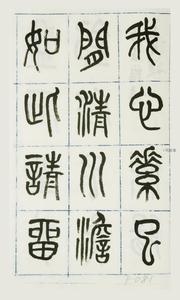 我心素已
閒清川澹
如此請留